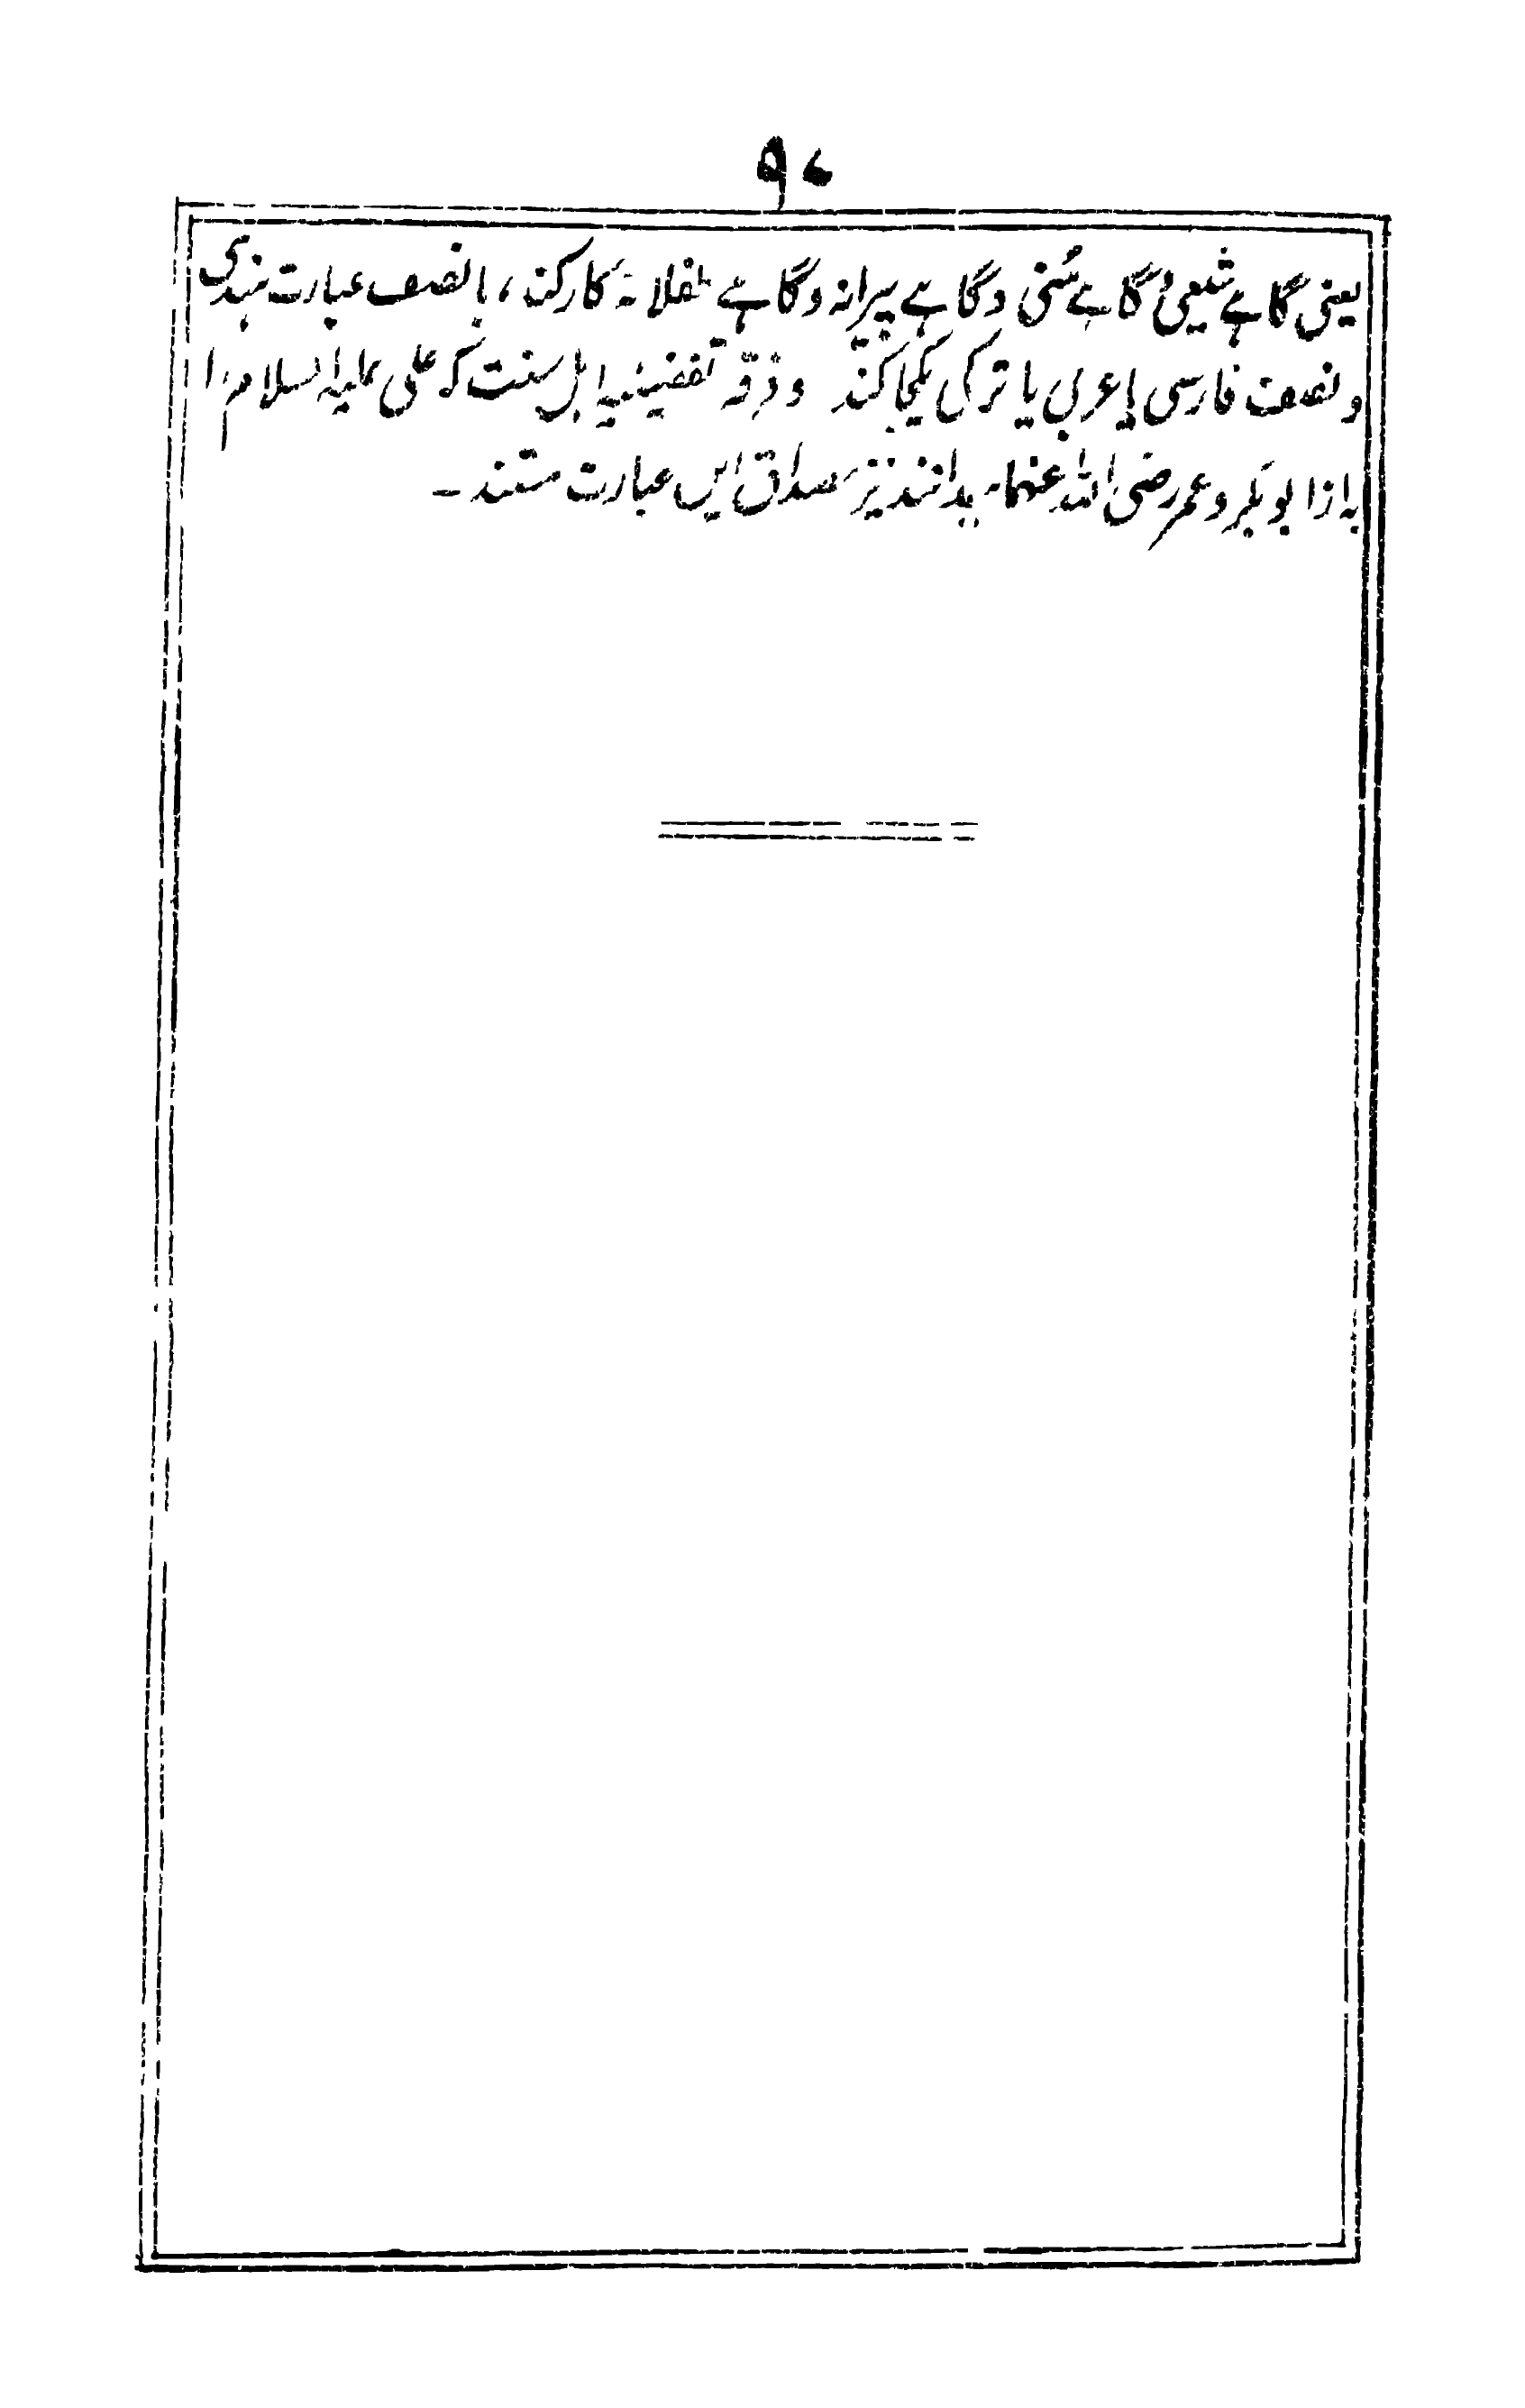 ۹۰
یعنی گاہے شیعی و گاہے سُنی و گاہے پیرانہ و گاہے طفلانہ کار کند، یا نصف عبارت ہندی
و نصف فارسی یا عربی یا ترکی یکجا کند و فرقہ تفضیلیہ اہل سنت کہ علی علیہ السلام را
بہ از ابوبکر و عمر رضی اللہ عنہما بدانند نیز مصداق ایں عبارت ہستند۔